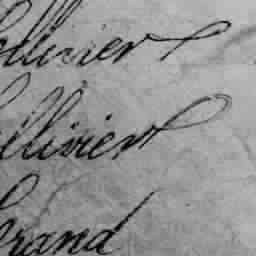 ellivier
ellivier
grand